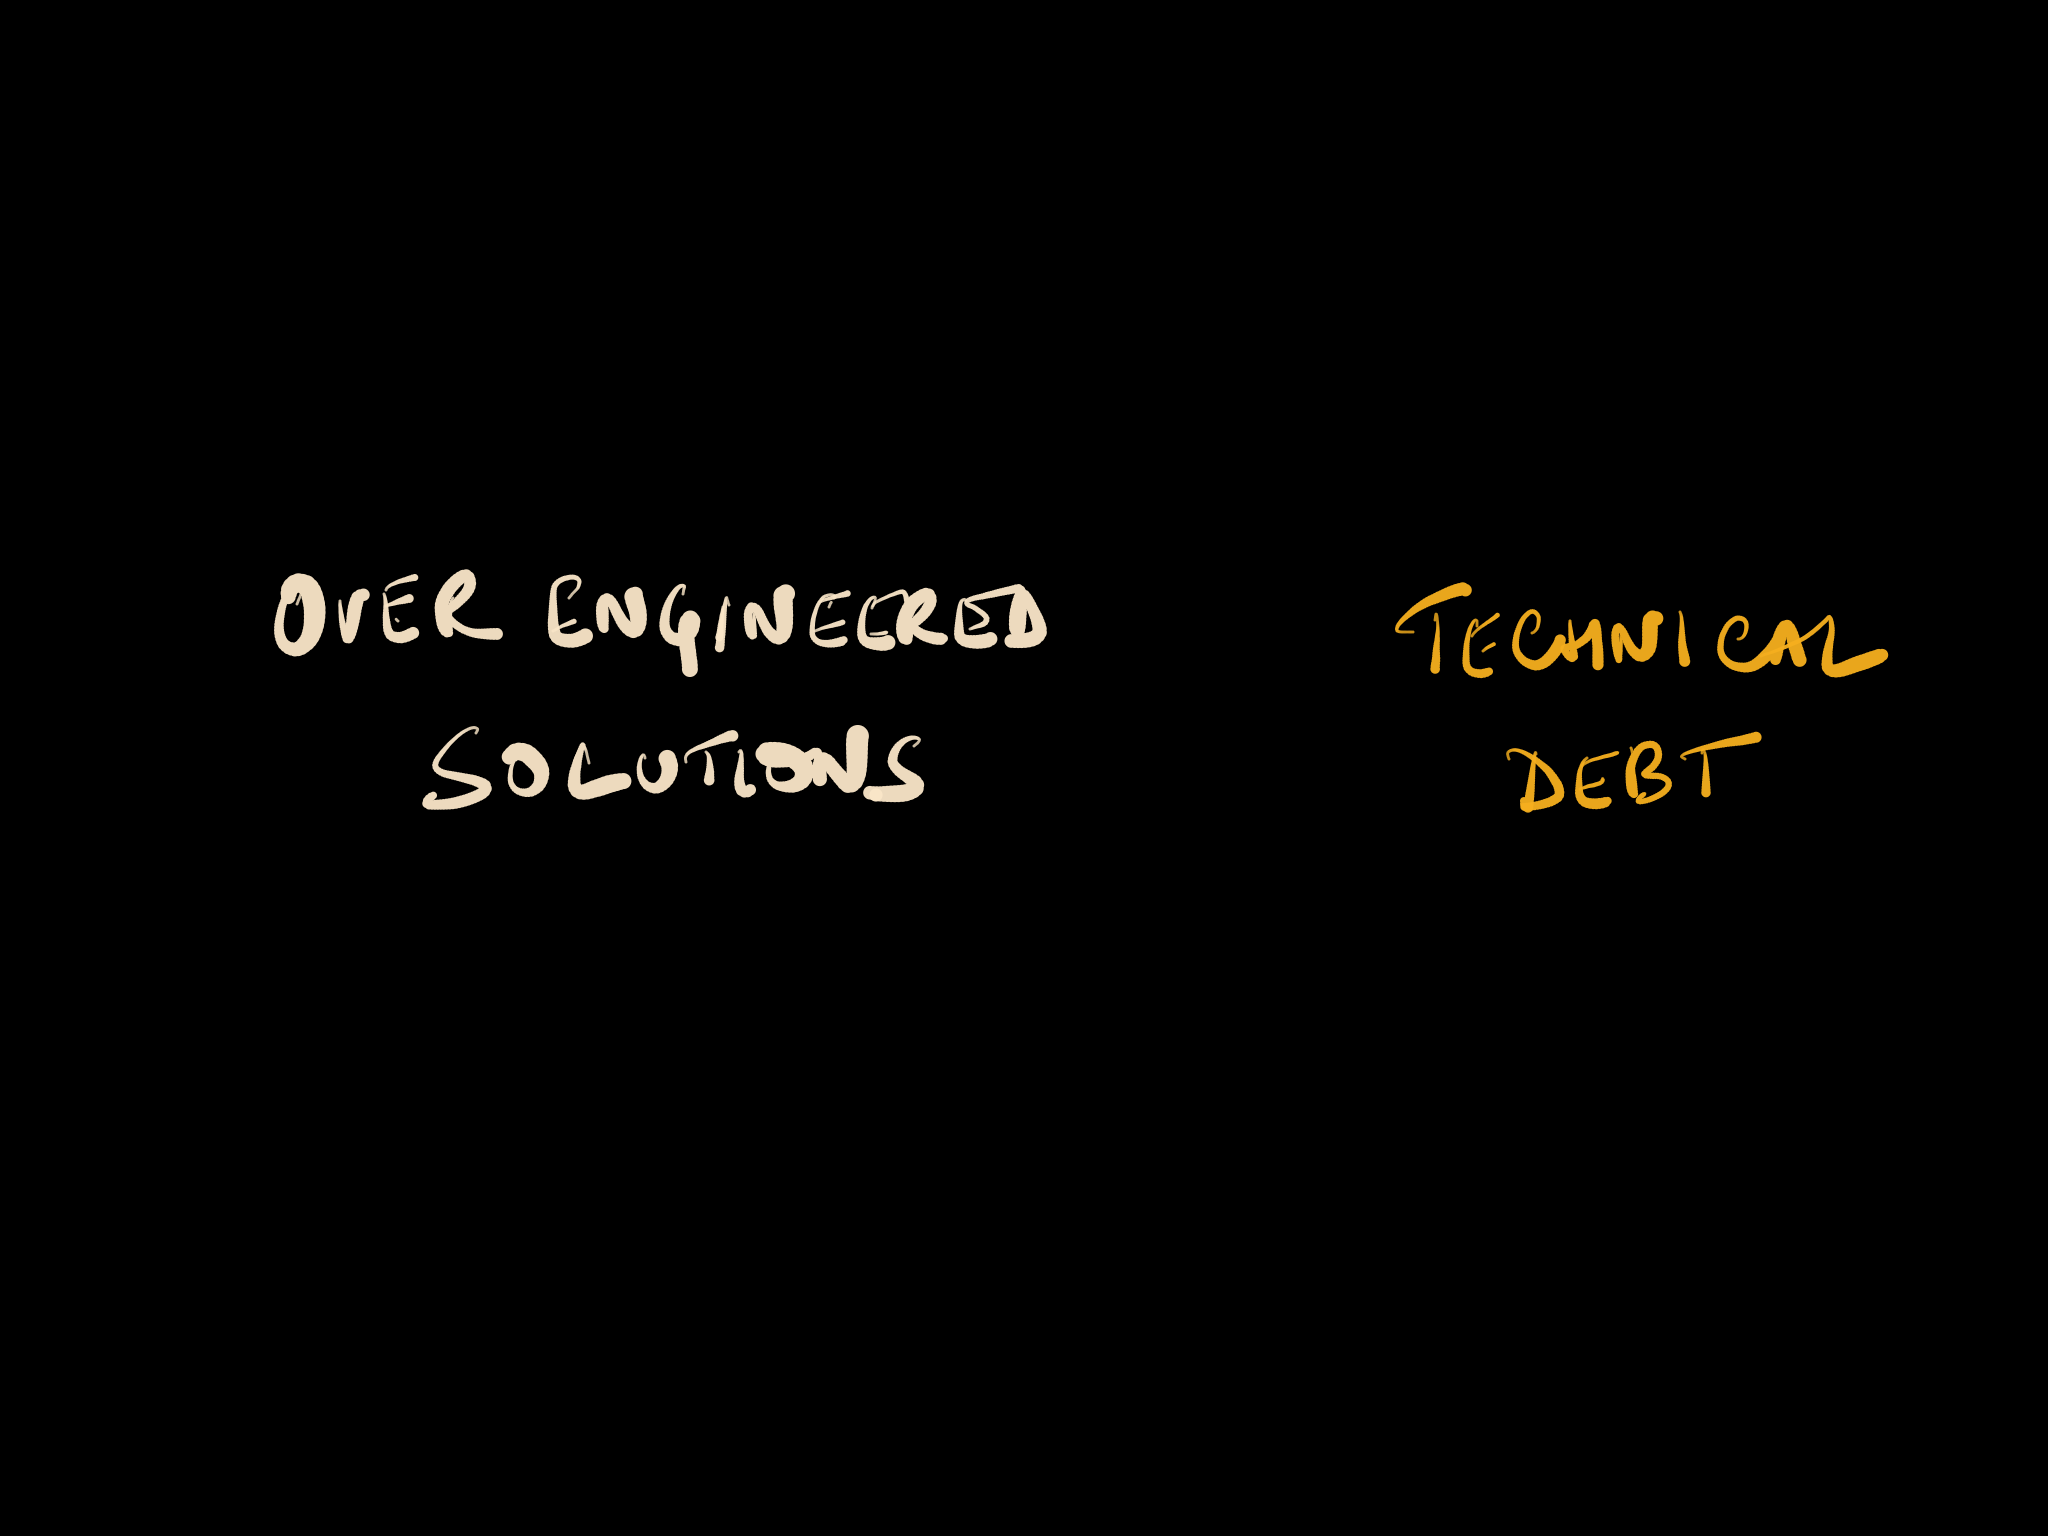 OVER ENGINEERED
SOLUTIONS
TECHNICAL
DEBT